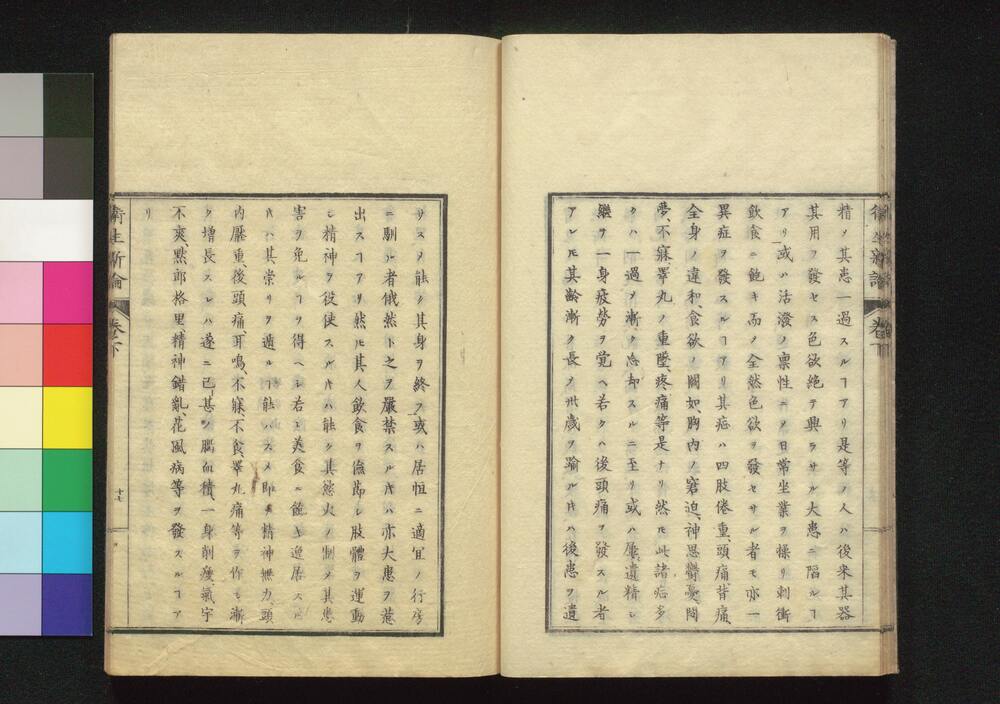 衛生新論 卷之下
精メ其患一過スルヿアリ是等ノ人ハ後来其器
其用ヲ發セス色欲絶テ興ラサル大患ニ陷ルヿ
アリ或ハ活潑ノ禀性ニノ日常坐業ヲ操リ刺衝
飲食ニ飽キ而ノ全然色欲ヲ發セサル者モ亦一
異症ヲ發スルヿアリ其症ハ四肢倦重、頭痛、背痛、
全身ノ違和、食欲ノ闕如、胸内ノ窘迫、神思鬱憂、悶
夢、不寐、睪丸ノ重墜、疼痛等是ナリ然𪜈此諸症多
クハ一過ノ漸ク忘却スルニ至リ或ハ屢遺精シ
繼ヲ一身疲勞ヲ覚ヘ若クハ後頭痛ヲ發スル者
アレ𪜈其齢漸ク長ノ卅歳ヲ踰ル𪜈ハ後患ヲ遺
サスノ能ク其身ヲ終フ或ハ居恒ニ適宜ノ行房
ニ馴ル者俄然ト之ヲ嚴禁スル𪜈ハ亦大患ヲ惹
出スヿアリ然𪜈其人飲食ヲ儉節シ肢體ヲ運動
シ精神ヲ役使スル𪜈ハ能ク其慾火ノ制メ其患
害ヲ免ルヿヲ得ヘシ若シ美食ニ飽キ逸居スル
𪜈ハ其祟リヲ遁ルヿ能ハスメ即チ精神無力、頭
内壓重、後頭痛、耳鳴、不寐、不食、睪丸痛等ヲ作シ漸
ク増長スレハ遂ニ己甚シ腦血積、一身削瘦、氣宇
不爽、黙郎格里、精神錯亂、花風病等ヲ發スルヿア
リ
衛生新論 卷之下 十七